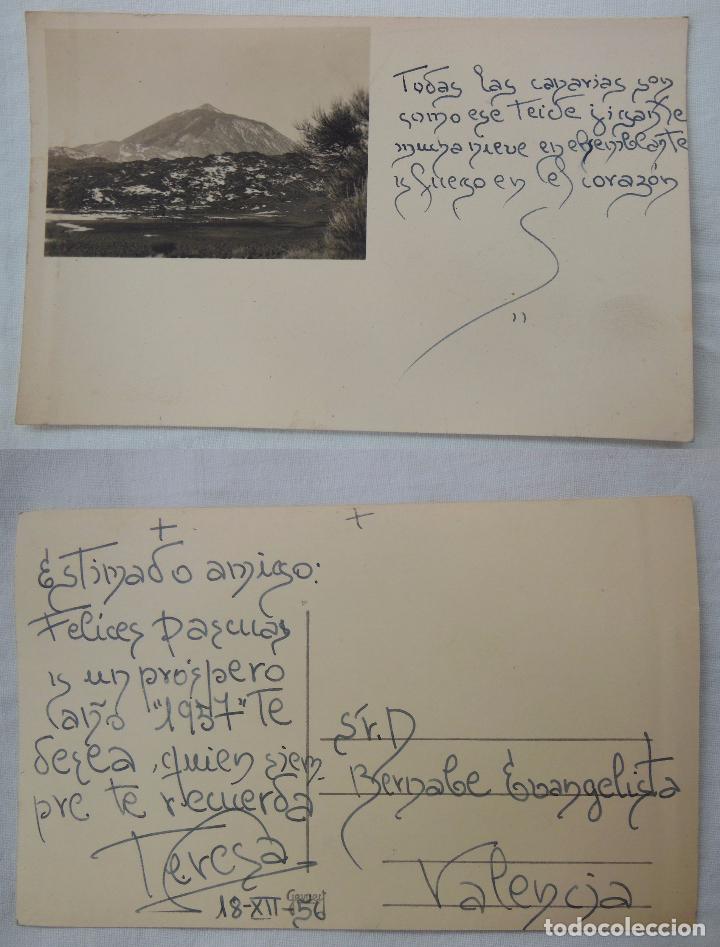 Todas las canarias son
como ese Teide gigante
mucha nieve en el semblante
y fuego en el corazón
Estimado amigo:
Felices Pascuas
y un próspero
año "1957" Te
desea, quien siem-
pre te recuerda
Teresa
18-XII-56
Sr. D
Bernabe Evangelista
Valencia
todocoleccion